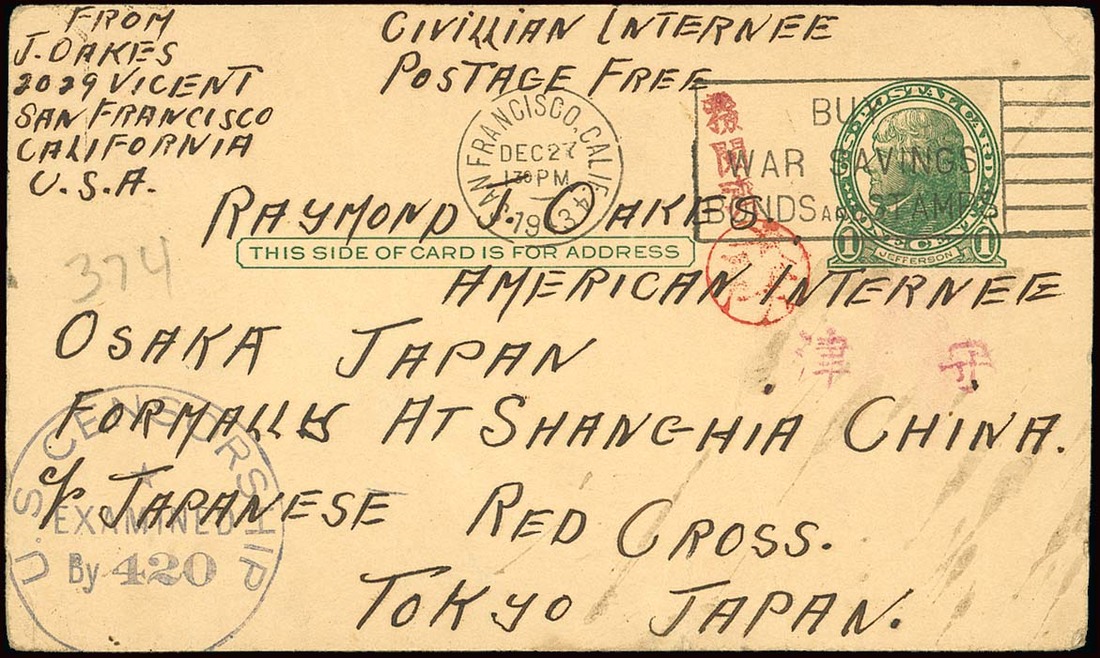 FROM
J. OAKES
2029 VICENT
SAN FRANCISCO
CALIFORNIA
U.S.A.
CIVILLIAN INTERNEE
POSTAGE FREE
SAN FRANCISCO, CALIF.
DEC 27
1 30 PM
1943
BUY
WAR SAVINGS
BONDS AND STAMPS
U.S. POSTAL CARD
ONE CENT
1 JEFFERSON 1
RAYMOND J. OAKES.
THIS SIDE OF CARD IS FOR ADDRESS
374
AMERICAN INTERNEE
OSAKA JAPAN
津 守
FORMALLY AT SHANGHIA CHINA.
℅ JAPANESE RED CROSS.
TOKYO JAPAN.
U.S. CENSORSHIP
EXAMINED
By 420